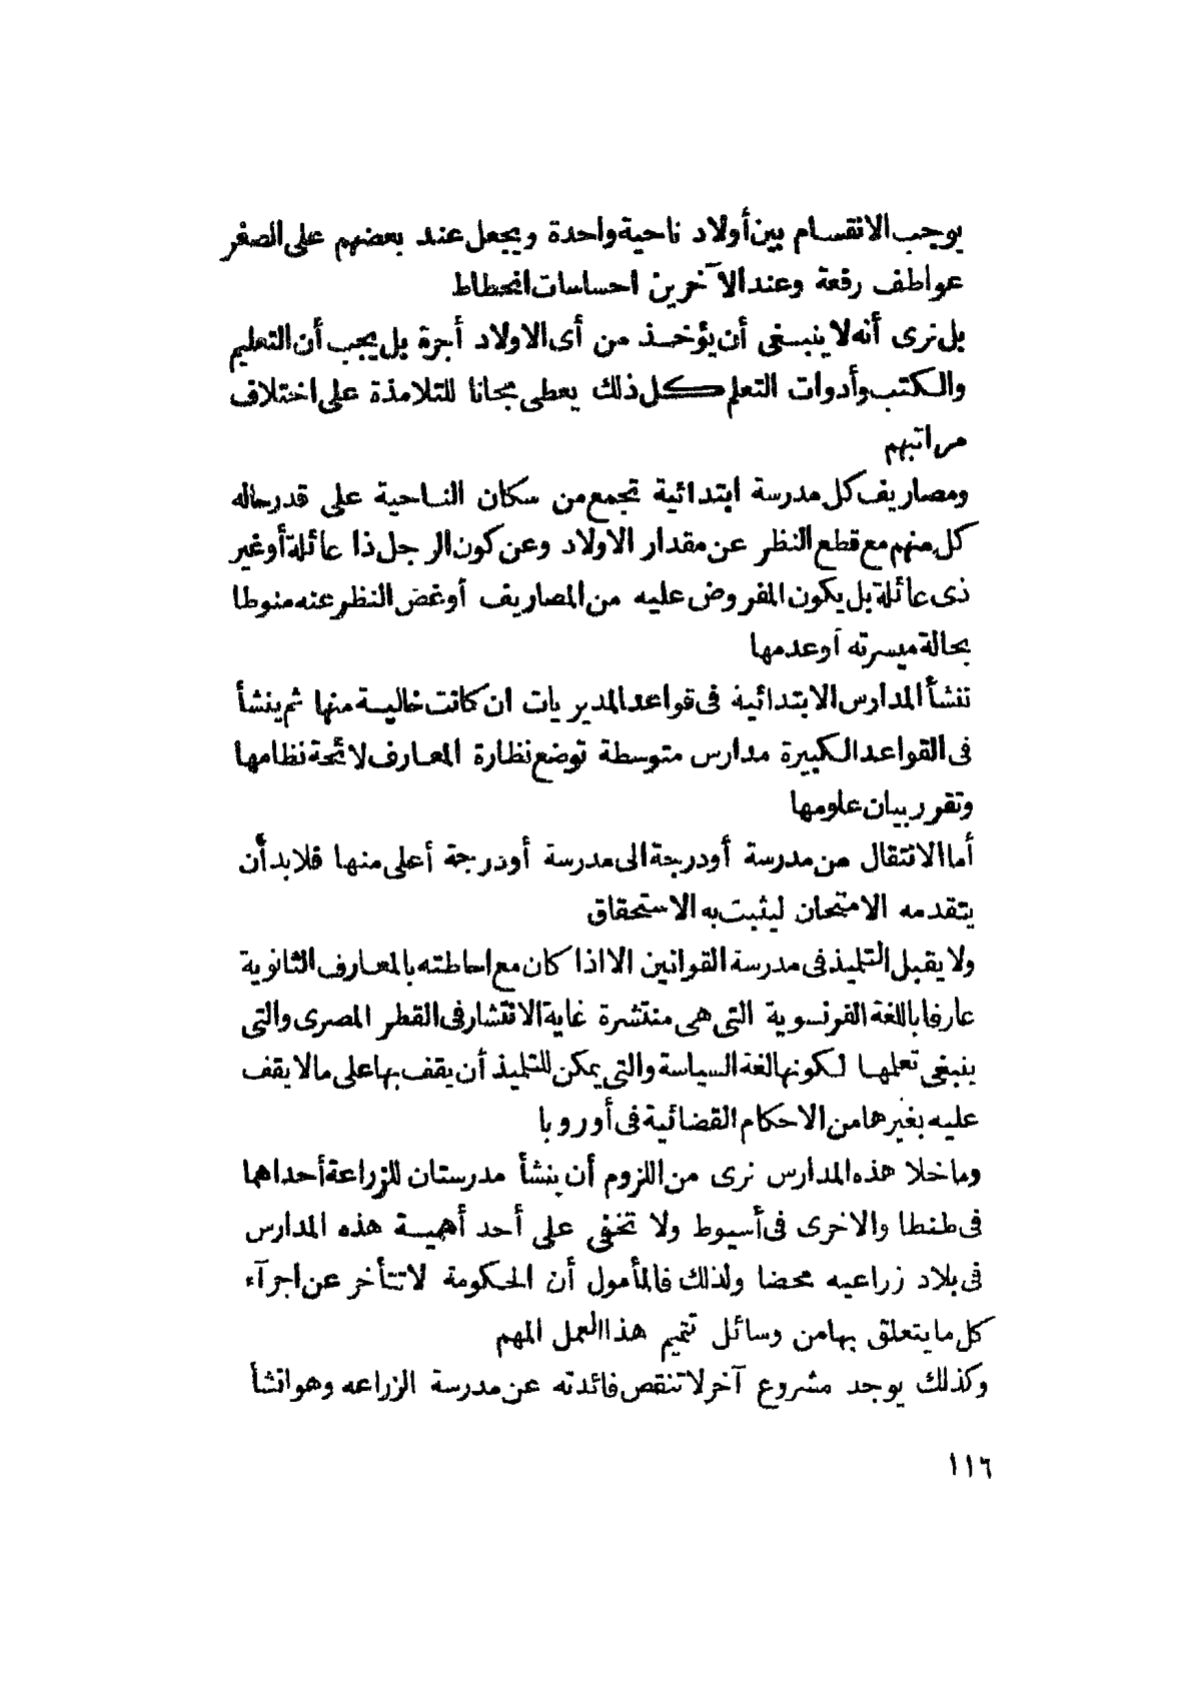 يوجب الانقسام بين أولاد ناحية واحدة ويجعل عند بعضهم على الصغر
عواطف رقعة وعند الآخرين احساسات انحطاط
بل نرى أنه لا ينبغى أن يؤخذ من أى الاولاد أجرة بل يجب أن التعليم
والكتب وأدوات التعلم كل ذلك يعطى مجانا للتلامذة على اختلاف
مراتبهم
ومصاريف كل مدرسة ابتدائية تجمع من سكان الناحية على قدر حاله
كل منهم مع قطع النظر عن مقدار الاولاد وعن كون الرجل ذا عائلة أو غير
ذى عائلة بل يكون المفروض عليه من المصاريف أو غض النظر عنه منوطا
بحالة ميسرته أو عدمها
تنشأ المدارس الابتدائية فى قواعد المديريات ان كانت خالية منها ثم ينشأ
فى القواعد الكبيرة مدارس متوسطة توضع نظارة المعارف لائحة نظامها
وتقرر بيان علومها
أما الانتقال من مدرسة أو درجة الى مدرسة أو درجة أعلى منها فلا بد أن
يتقدمه الامتحان ليثبت به الاستحقاق
ولا يقبل التلميذ فى مدرسة القوانين الا اذا كان مع احاطته بالمعارف الثانوية
عارفا باللغة الفرنسوية التى هى منتشرة غاية الانتشار فى القطر المصرى والتى
ينبغى تعلمها لكونها لغة السياسة والتى يمكن للتلميذ أن يقف بها على ما لا يقف
عليه بغيرها من الاحكام القضائية فى أوروبا
وما خلا هذه المدارس نرى من اللزوم أن ينشأ مدرستان للزراعة أحداهما
فى طنطا والاخرى فى أسيوط ولا تخفى على أحد أهمية هذه المدارس
فى بلاد زراعيه محضا ولذلك فالمأمول أن الحكومة لا تتأخر عن اجرآء
كل ما يتعلق بها من وسائل تتميم هذا العمل المهم
وكذلك يوجد مشروع آخر لا تنقص فائدته عن مدرسة الزراعه وهو انشأ
١١٦